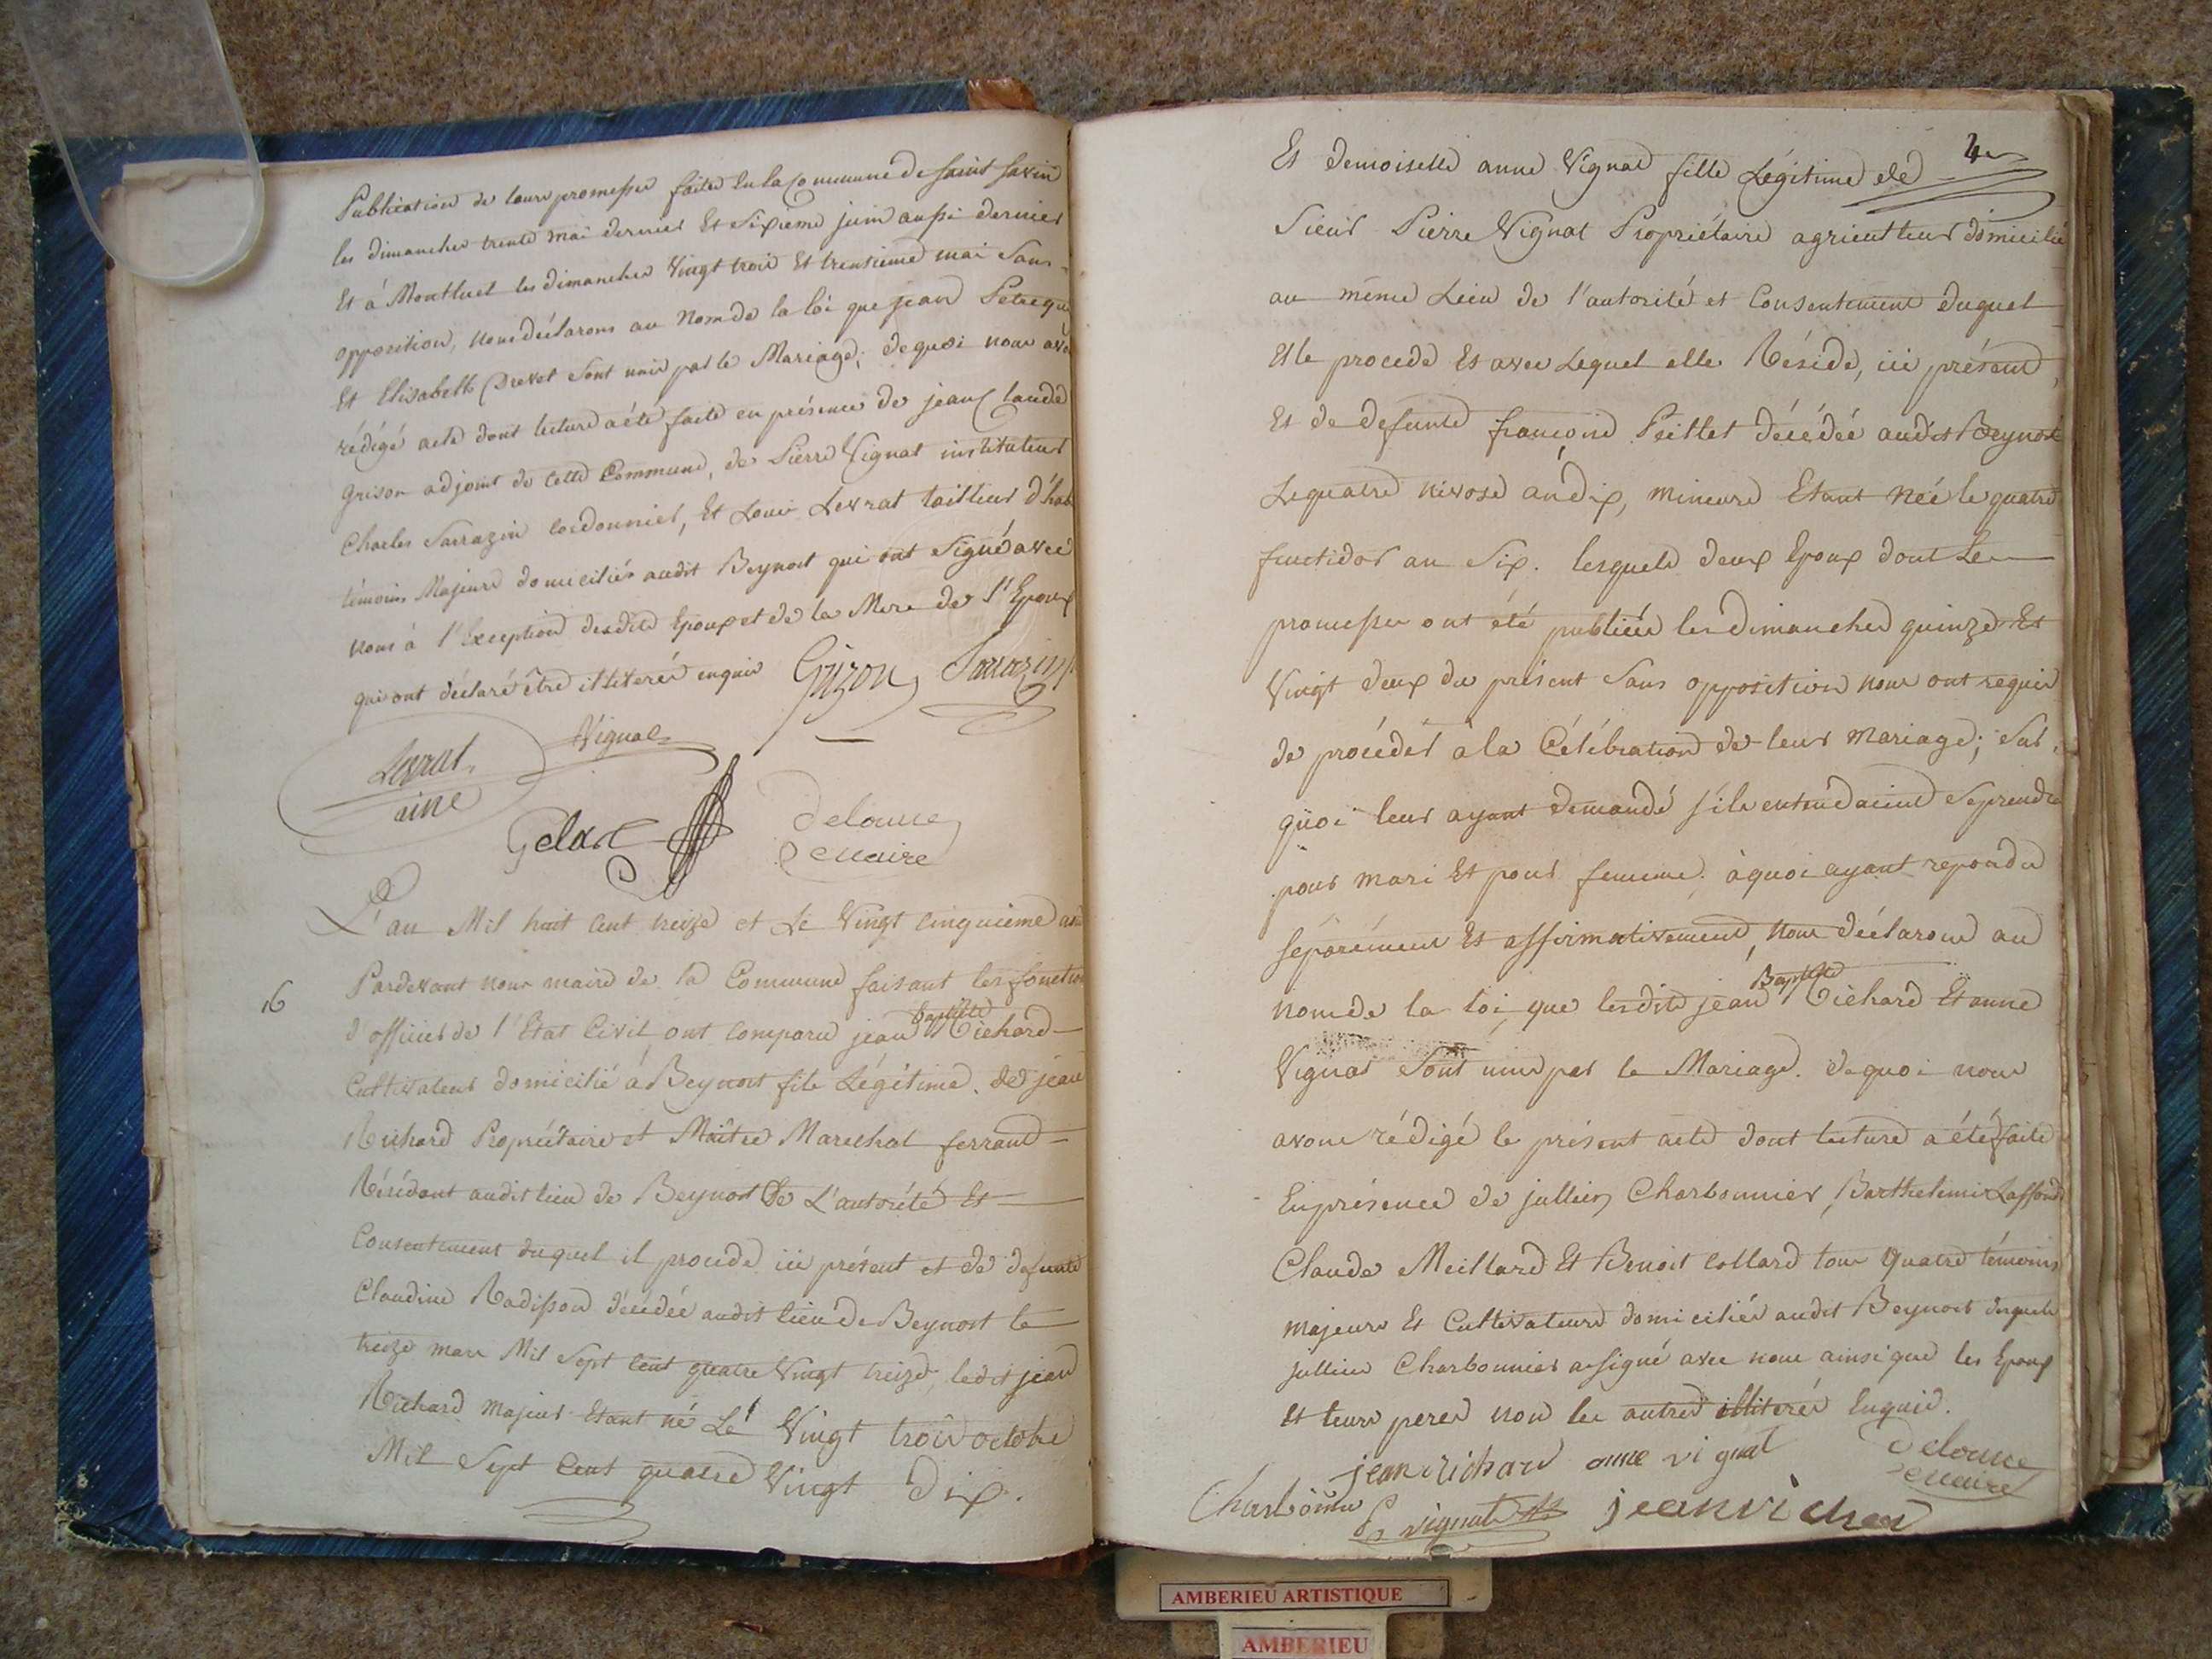 Publication de leurs promesses faites en la Commune de Saint Savin
les dimanches trente mai dernier Et Sixieme juin aussi dernier
Et à Montluel les dimanches Vingt trois Et trentieme mai Sans
opposition, nous déclarons au Nom de la loi que jean
Et Elisabeth Drevet Sont unis par le Mariage; de quoi nous avons
rédigé acte dont lecture a été faite en présence de jean Claude
Grison adjoint de cette Commune, de Pierre Vignat instituteur
Charles Sarrazin Cordonnier, Et Louis Levrat tailleur d'hab
témoins Majeurs domiciliés audit Beynost qui ont Signé avec
nous à l'Exception desdits Epoux et de la Mere de l'Epoux
qui ont déclaré être illiterés enquis Grizon Sarrazin
Levrat Vignat
ainé
Gelas Delorme
maire
L'an Mil huit Cent treize et Le Vingt Cinquième
16
Pardevant nous maire de la Commune faisant les fonction
Baptiste
d'officier de l'Etat Civil ont comparu jean Richard
Cultivateur domicilié à Beynost fils Légitime de jean
Richard Propriétaire et Maître Marechal ferrand
Résidant audit lieu de Beynost De L'autorité Et
Consentement duquel il procede ici présent et de defunte
Claudine Radisson décédée audit lieu de Beynost le
treize mars Mil Sept Cent quatre Vingt treize, ledit jean
Richard majeur Etant né Le Vingt trois octobre
Mil Sept Cent quatre Vingt Dix.
Et demoiselle anne Vignat fille Légitime de
Sieur Pierre Vignat Propriétaire agriculteur domicilié
au même Lieu de l'autorité et Consentement duquel
Elle procede Et avec Lequel elle Réside, ici présent,
Et de defunte françoise Peillet décédée audit Beynost
Le quatre nivose an dix, mineure Etant Née le quatre
fructidor an Six. lesquels deux Epoux dont Les
promesses ont été publiées les Dimanches quinze Et
Vingt deux du présent Sans opposition nous ont requis
de procéder à la Célébration de leur Mariage; Sur
quoi leur ayant demandé s'ils entendaient Se prendre
pour mari Et pour femme. à quoi ayant repondu
séparement Et affirmativement, Nous déclarons au
Baptiste
nom de la loi, que lesdits jean Richard Et anne
Vignat Sont unis par le Mariage. de quoi nous
avons rédigé le présent acte dont lecture a été faite
En présence de jullien Charbonnier, Barthelemi Laffond
Claude Meillard Et Benoit Collard tous Quatre témoins
majeurs Et Cultivateurs domiciliés audit Beynost desquels
jullien Charbonnier a signé avec nous ainsi que les Epoux
Et leurs peres non les autres illiterés Enquis.
jean richard anne vignat Delorme
maire
Charbonnier P vignat jean richard
AMBERIEU ARTISTIQUE
AMBERIEU